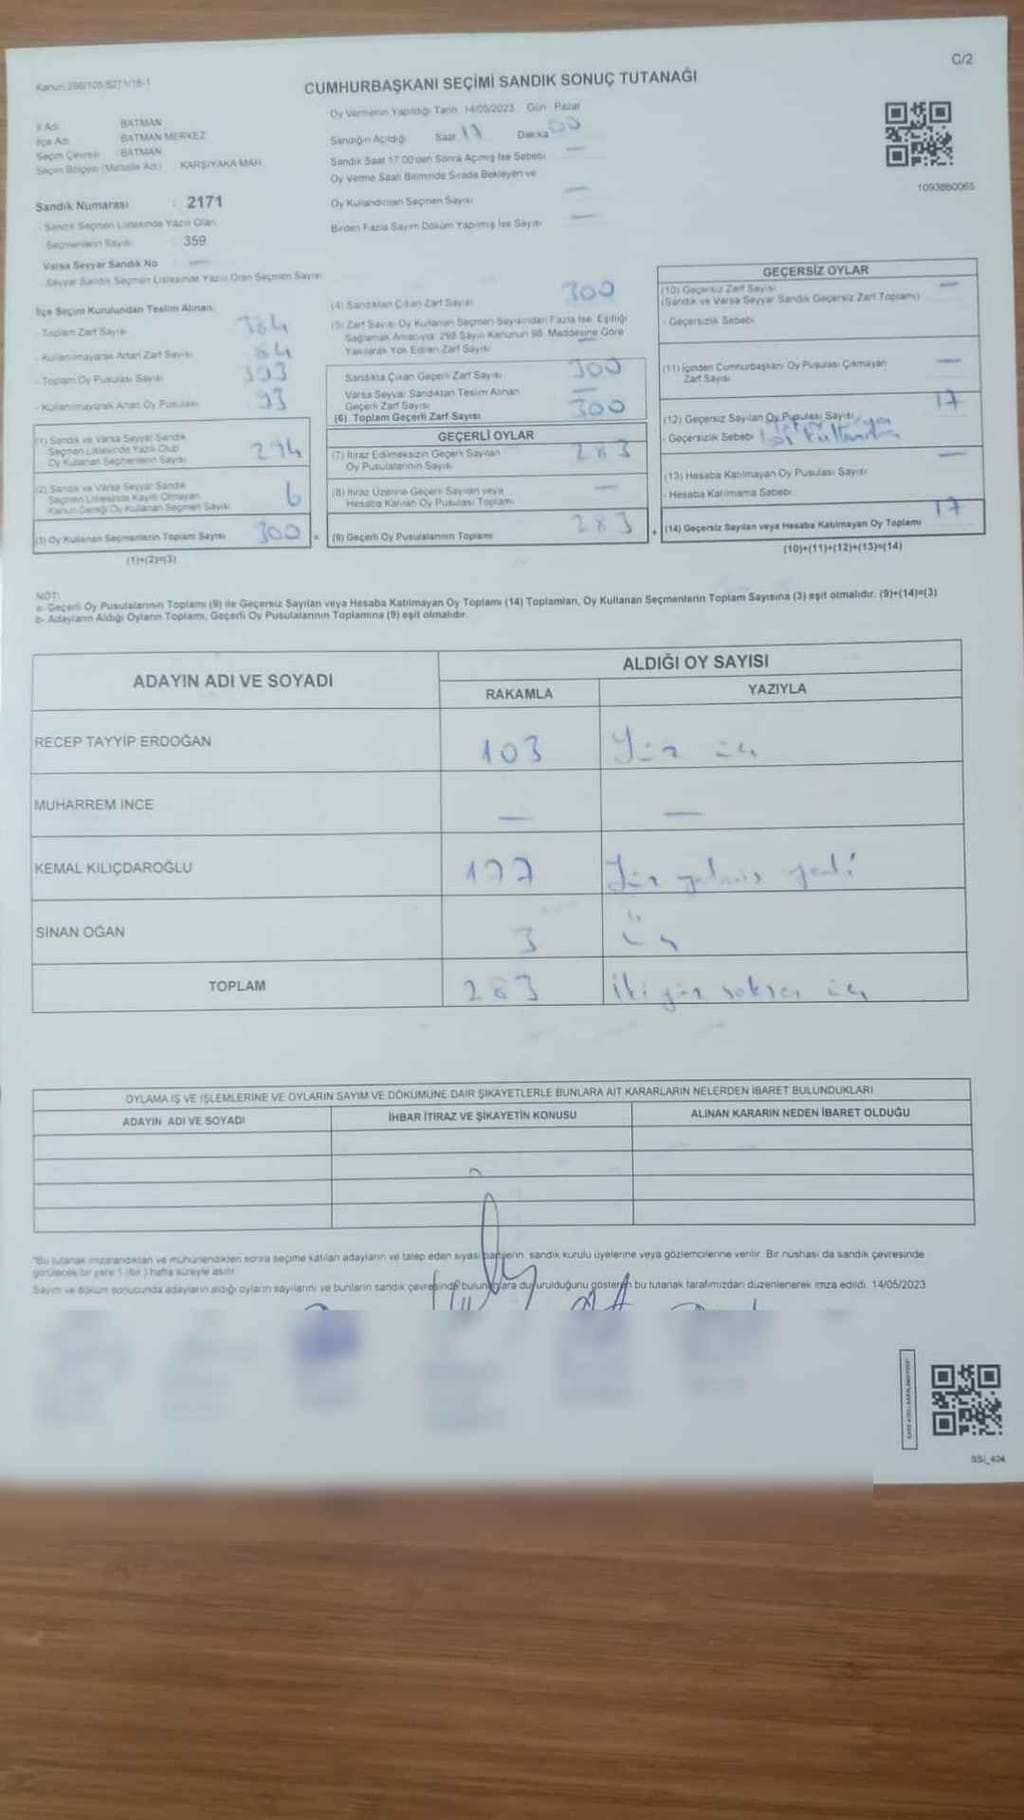 C/2
Kanun: 298/105/6271/16-1
CUMHURBAŞKANI SEÇİMİ SANDIK SONUÇ TUTANAĞI
İl Adı : BATMAN
İlçe Adı : BATMAN MERKEZ
Seçim Çevresi : BATMAN
Seçim Bölgesi (Mahalle Adı) : KARŞIYAKA MAH.
Sandık Numarası : 2171
- Sandık Seçmen Listesinde Yazılı Olan
Seçmenlerin Sayısı : 359
Varsa Seyyar Sandık No —
- Seyyar Sandık Seçmen Listesinde Yazılı Olan Seçmen Sayısı
Oy Vermenin Yapıldığı Tarih 14/05/2023 Gün Pazar
Sandığın Açıldığı Saat 17 Dakika 00
Sandık Saat 17:00'den Sonra Açılmış İse Sebebi —
Oy Verme Saati Bitiminde Sırada Bekleyen ve
Oy Kullandırılan Seçmen Sayısı —
Birden Fazla Sayım Döküm Yapılmış İse Sayısı —
1093860065
İlçe Seçim Kurulundan Teslim Alınan:
- Toplam Zarf Sayısı 384
- Kullanılmayarak Artan Zarf Sayısı 84
- Toplam Oy Pusulası Sayısı 393
- Kullanılmayarak Artan Oy Pusulası 93
(1) Sandık ve Varsa Seyyar Sandık
Seçmen Listesinde Yazılı Olup
Oy Kullanan Seçmenlerin Sayısı 294
(2) Sandık ve Varsa Seyyar Sandık
Seçmen Listesinde Kayıtlı Olmayan
Kanun Gereği Oy Kullanan Seçmen Sayısı 6
(3) Oy Kullanan Seçmenlerin Toplam Sayısı 300
(1)+(2)=(3)
(4) Sandıktan Çıkan Zarf Sayısı 300
(5) Zarf Sayısı Oy Kullanan Seçmen Sayısından Fazla İse, Eşitliği
Sağlamak Amacıyla 298 Sayılı Kanunun 98. Maddesine Göre
Yakılarak Yok Edilen Zarf Sayısı —
Sandıkta Çıkan Geçerli Zarf Sayısı 300
Varsa Seyyar Sandıktan Teslim Alınan
Geçerli Zarf Sayısı —
(6) Toplam Geçerli Zarf Sayısı 300
GEÇERLİ OYLAR
(7) İtiraz Edilmeksizin Geçerli Sayılan
Oy Pusulalarının Sayısı 283
(8) İtiraz Üzerine Geçerli Sayılan veya
Hesaba Katılan Oy Pusulası Toplamı —
(9) Geçerli Oy Pusulalarının Toplamı 283
GEÇERSİZ OYLAR
(10) Geçersiz Zarf Sayısı —
(Sandık ve Varsa Seyyar Sandık Geçersiz Zarf Toplamı)
- Geçersizlik Sebebi
(11) İçinden Cumhurbaşkanı Oy Pusulası Çıkmayan
Zarf Sayısı —
(12) Geçersiz Sayılan Oy Pusulası Sayısı 17
- Geçersizlik Sebebi
(13) Hesaba Katılmayan Oy Pusulası Sayısı —
- Hesaba Katılmama Sebebi
(14) Geçersiz Sayılan veya Hesaba Katılmayan Oy Toplamı 17
(10)+(11)+(12)+(13)=(14)
NOT:
a- Geçerli Oy Pusulalarının Toplamı (9) ile Geçersiz Sayılan veya Hesaba Katılmayan Oy Toplamı (14) Toplamları, Oy Kullanan Seçmenlerin Toplam Sayısına (3) eşit olmalıdır. (9)+(14)=(3)
b- Adayların Aldığı Oyların Toplamı, Geçerli Oy Pusulalarının Toplamına (9) eşit olmalıdır.
ADAYIN ADI VE SOYADI
ALDIĞI OY SAYISI
RAKAMLA YAZIYLA
RECEP TAYYİP ERDOĞAN 103 Yüz üç
MUHARREM İNCE — —
KEMAL KILIÇDAROĞLU 177 Yüz yetmiş yedi
SİNAN OĞAN 3 üç
TOPLAM 283 iki yüz seksen üç
OYLAMA İŞ VE İŞLEMLERİNE VE OYLARIN SAYIM VE DÖKÜMÜNE DAİR ŞİKAYETLERLE BUNLARA AİT KARARLARIN NELERDEN İBARET BULUNDUKLARI
ADAYIN ADI VE SOYADI İHBAR İTİRAZ VE ŞİKAYETİN KONUSU ALINAN KARARIN NEDEN İBARET OLDUĞU
*Bu tutanak imzalandıktan ve mühürlendikten sonra seçime katılan adayların ve talep eden siyasi partilerin, sandık kurulu üyelerine veya gözlemcilerine verilir. Bir nüshası da sandık çevresinde
görülecek bir yere 1 (bir) hafta süreyle asılır.
Sayım ve döküm sonucunda adayların aldığı oyların sayılarını ve bunların sandık çevresinde bulunanlara duyurulduğunu gösteren bu tutanak tarafımızdan düzenlenerek imza edildi. 14/05/2023